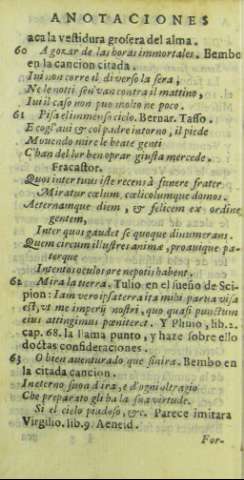 ANOTACIONES
aca la vestidura grosera del alma.
60 A gozar de las horas immortales. Bembo
en la cancion citada.
Iui non corre il di verso la sera,
Ne le notti sen' van contra il mattino,
Iui il caso non puo molto ne poco.
61 Pisa el immenso cielo. Bernar. Tasso.
E cogl' aui & col padre intorno, il piede
Mouendo mire le beate genti
C'han del lor ben oprar giusta mercede.
Fracastor.
Quos inter tuus iste recens à funere frater
Miratur cœlum, cœlicolumque domos.
Aeternamque diem, & felicem ex ordine
gentem,
Inter quos gaudet se quoque dinumerans.
Quem circum illustres animæ, proauique pa-
terque
Intentos oculos ore nepotis habent.
62 Mira la tierra. Tulio en el sueño de Sci-
pion: Iam vero ipsa terra ita mihi parua visa
est, vt me imperij nostri, quo quasi punctum
eius attingimus pœniteret. Y Plinio, lib.2.
cap. 68. la llama punto, y haze sobre ello
doctas consideraciones.
63 O bien auenturado que sinira. Bembo en
la citada cancion.
In eterno suo a d'ira, e d'ogni oltragio
Che preparato gli ha la sua virtude.
Si el cielo piadoso, &c. Parece imitara
Virgilio. lib.9. Aeneid.
For-